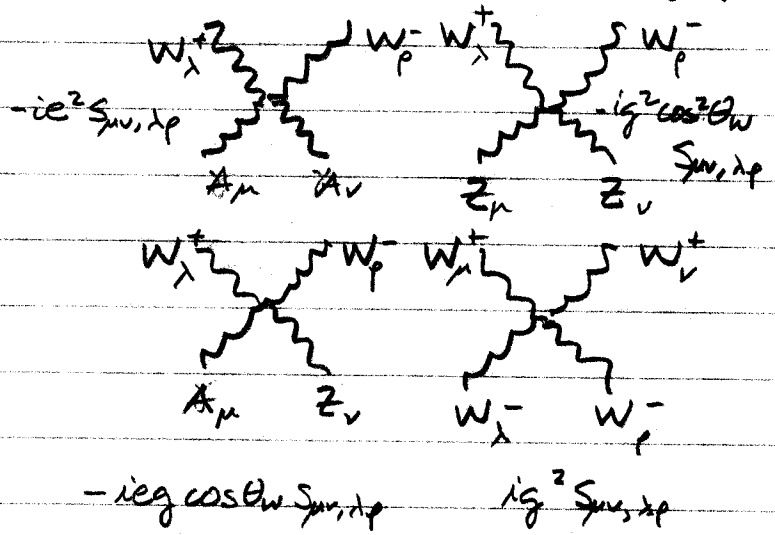 W⁺_λ W⁻_ρ W⁺_λ W⁻_ρ
-ie² S_μν,λρ -ig² cos²θ_W S_μν,λρ
A_μ A_ν Z_μ Z_ν
W⁺_λ W⁻_ρ W⁺_μ W⁺_ν
A_μ Z_ν W⁻_λ W⁻_ρ
-ieg cosθ_W S_μν,λρ ig² S_μν,λρ